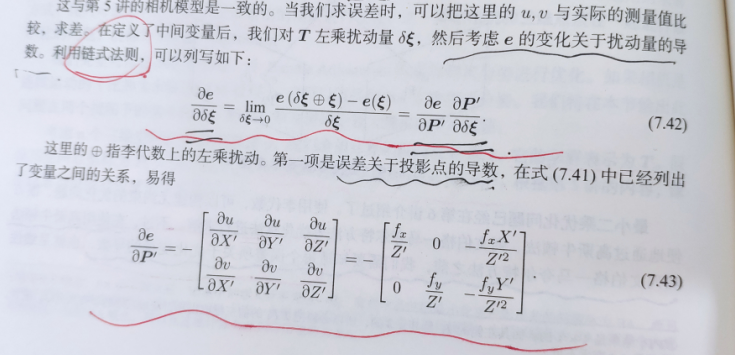 这与第 5 讲的相机模型是一致的。当我们求误差时，可以把这里的 u, v 与实际的测量值比
较，求差。在定义了中间变量后，我们对 T 左乘扰动量 δξ，然后考虑 e 的变化关于扰动量的导
数。利用链式法则，可以列写如下：
∂e/∂δξ = lim_{δξ→0} (e (δξ ⊕ ξ) − e(ξ))/δξ = ∂e/∂P′ ∂P′/∂δξ. (7.42)
这里的 ⊕ 指李代数上的左乘扰动。第一项是误差关于投影点的导数，在式 (7.41) 中已经列出
了变量之间的关系，易得
∂e/∂P′ = − [∂u/∂X′ ∂u/∂Y′ ∂u/∂Z′; ∂v/∂X′ ∂v/∂Y′ ∂v/∂Z′] = − [f_x/Z′ 0 −f_xX′/Z′²; 0 f_y/Z′ −f_yY′/Z′²] (7.43)